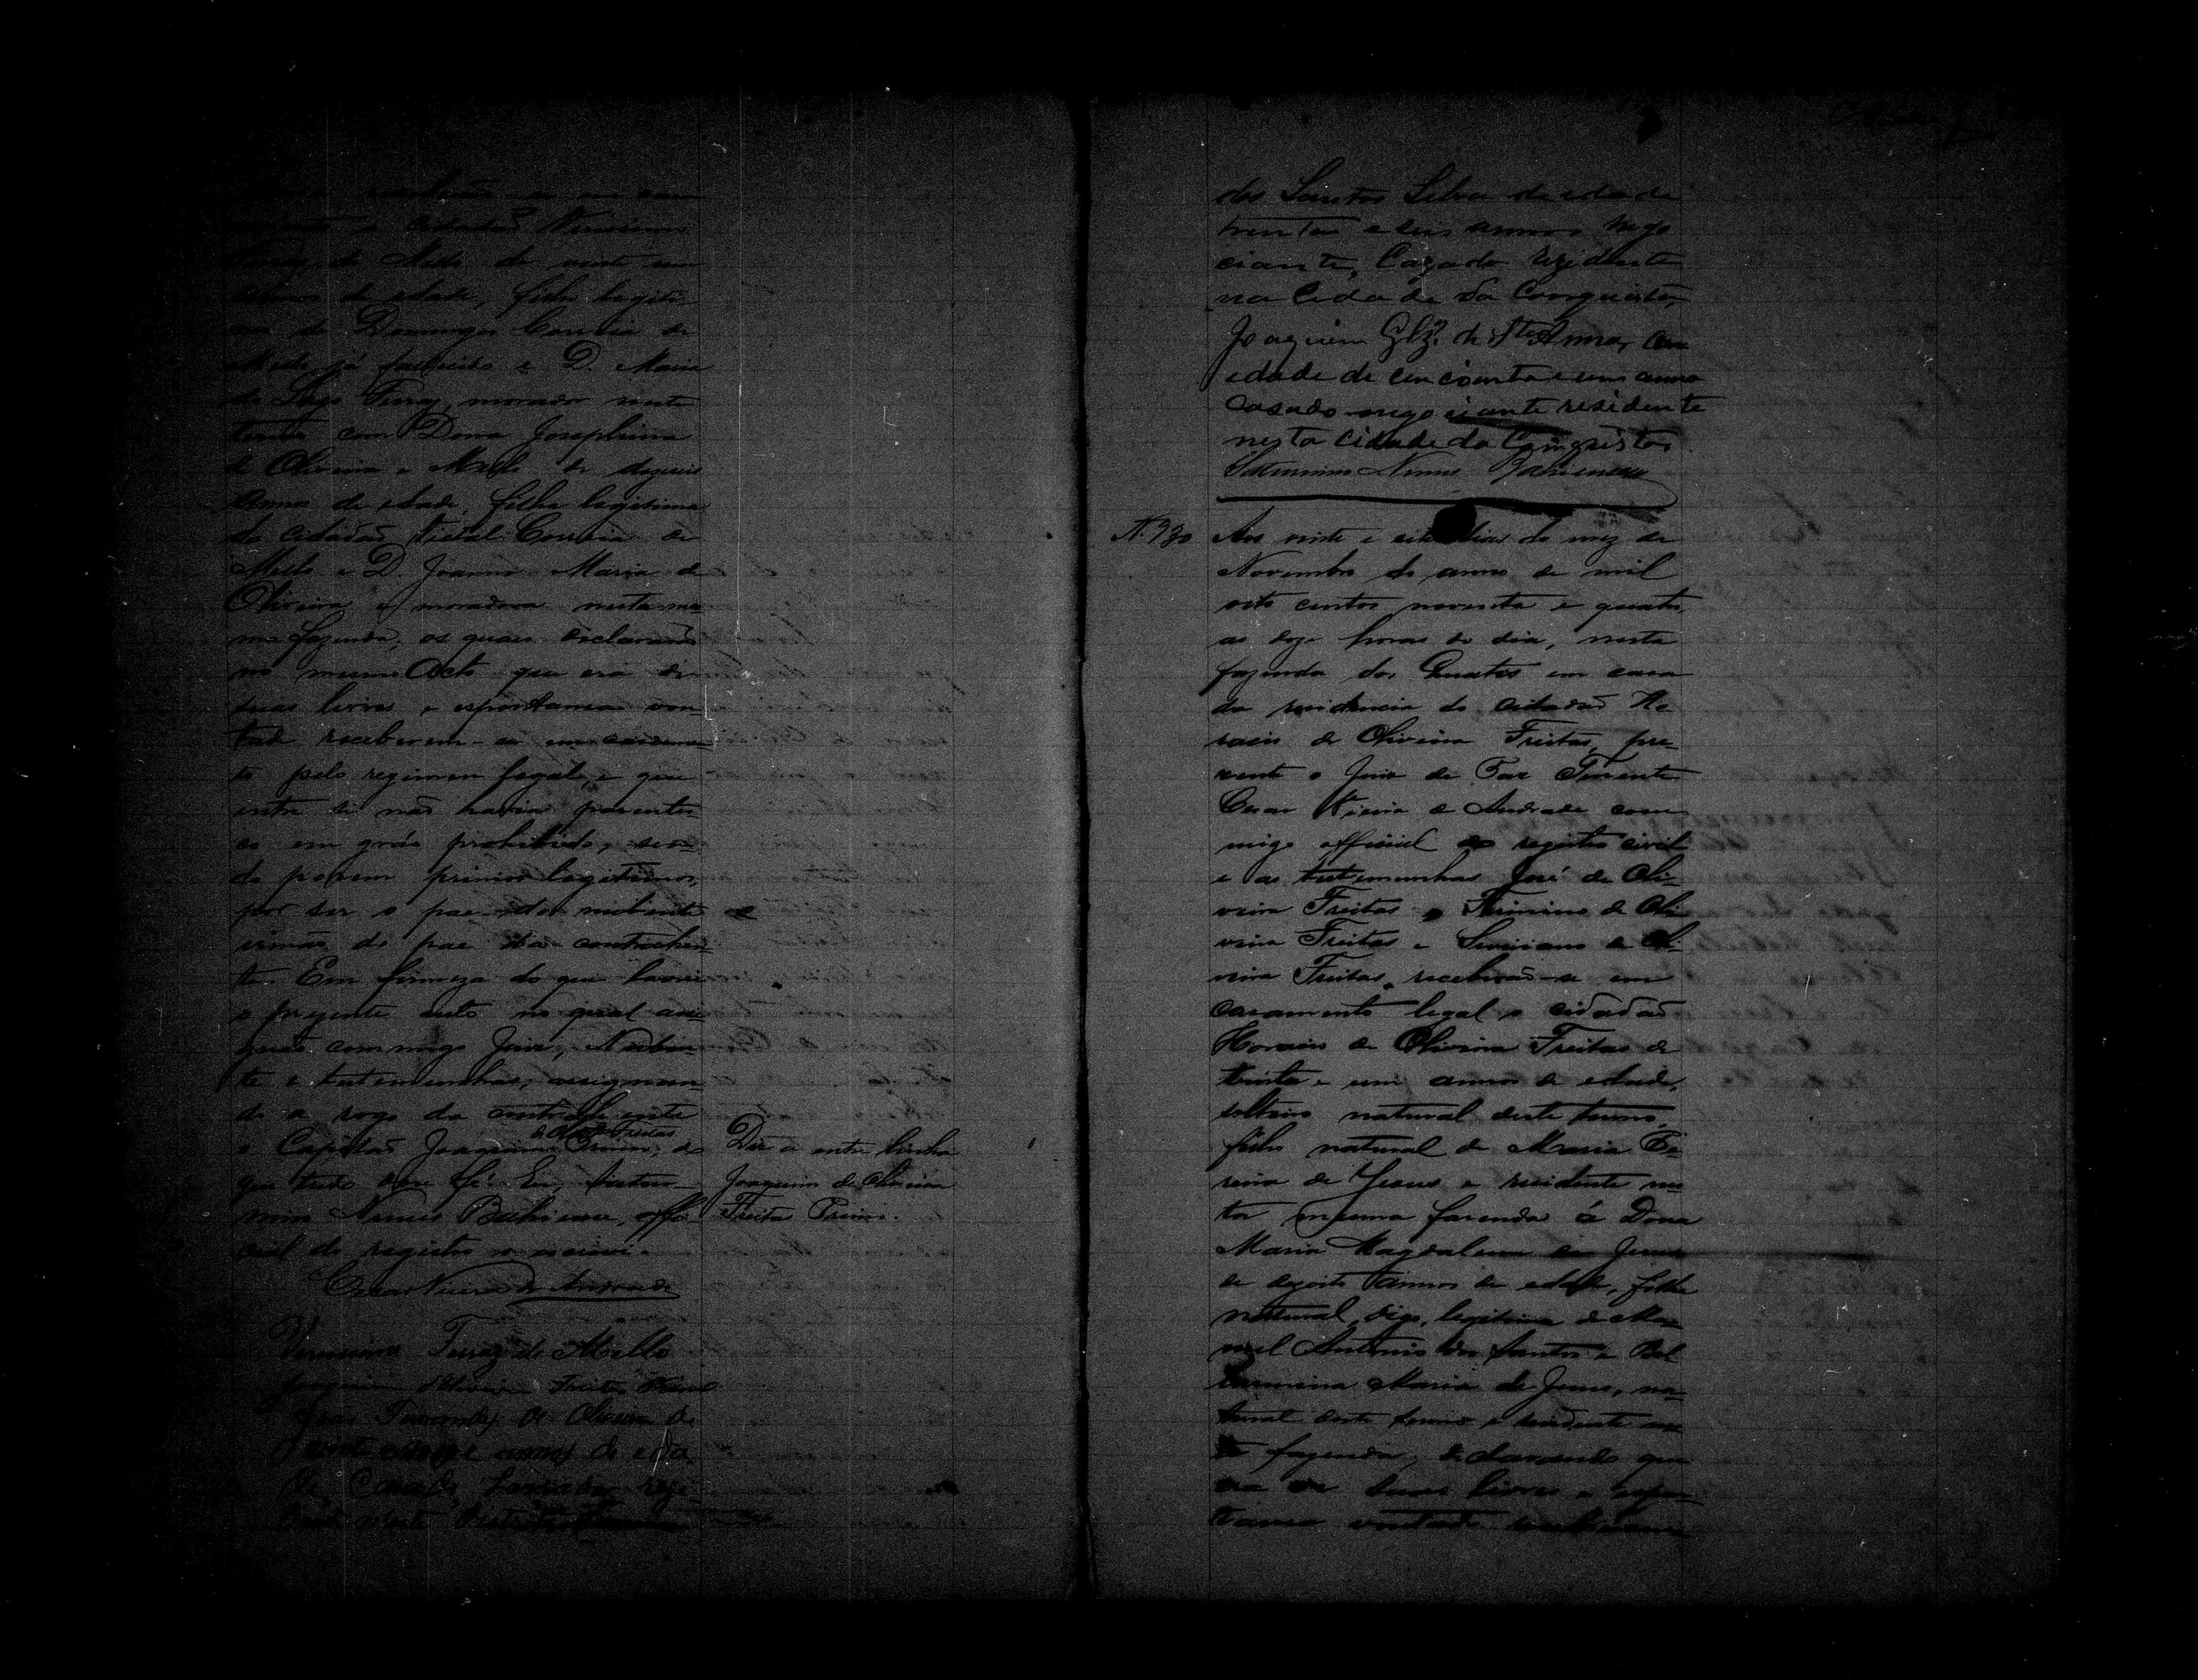 cidadão Verissimo
Ferraz de Mello de vinte um
annos de edade, filho legiti-
mo de Domingos Correia de
Mello já fallecido e D. Maria
do Lago Ferraz, morador neste
termo com Dona Josephina
de Oliveira e Mello de dezeseis
annos de edade, filha legitima
do cidadão Vital Correia de
Mello e D. Joanna Maria de
Oliveira e moradora nesta mes-
ma fazenda, os quaes declararão
no mesmo Acto que era de
suas livres e espontanea von-
tade receberem-se em casamen-
to pelo regimen legal, e que
entre si não havia parentes-
co em gráo prohibido, sen-
do porem primos legitimos,
por ser o pae do nubente
irmão do pae da contrahen-
te. Em firmeza do que lavrei
o prezente acto no qual assi-
gnão commigo Juiz, Nuben-
te e testemunhas, assignan-
do a rogo da contrahente
de Olivª Freitas
o Capitão Joaquim Primo; do
que tudo dou fé. Eu, Satur-
nino Nunes Bahiense, offi-
cial do registro o escrevi.
Dir a entre linha
Joaquim de Oliveira
Freitas Primo.
Cesar Vieira de Andrade
Verissimo Ferraz de Mello
Joaquim d'Oliveira Freitas Primo
de Oliveira de
annos de eda
de Casado Lavrador rezi
dente neste
dos Santos Silva de edade
trinta e seis annos nego
ciante, Cazado rezidente
na Cidade da Conquista,
Joaquim Glz? de Stª Anna, com
edade de cincoenta e um anno
Casado negociante residente
nesta Cidade da Conquista
Saturnino Nunes Bahiense
N. 930
Aos vinte e dias do mez de
Novembro do anno de mil
oito centos noventa e quatro,
as doze horas do dia, nesta
fazenda dos Quatis em casa
da residencia do cidadão Ho-
racio de Oliveira Freitas, pre-
sente o Juiz de Paz Tenente
Cesar Vieira de Andrade com
migo official do registro civil
e as testemunhas José de Oli-
veira Freitas e Firmino de Oli
veira Freitas e de Oli-
veira Freitas, receberão-se em
casamento legal o cidadão
Horacio de Oliveira Freitas de
trinta e um annos de edade,
solteiro natural deste termo,
filho natural de Maria Pe-
reira de Jesus e residente nes-
ta mesma fazenda á Dona
Maria Magdalena de Jesus
de dezoito annos de edade, filha
natural, digo, legitima de Ma-
noel Antonio dos Santos e Bel
larmina Maria de Jesus, na-
tural deste termo e residente nes-
ta fazenda, declarando que
era de suas livres e espon-
tanea vontade receberem